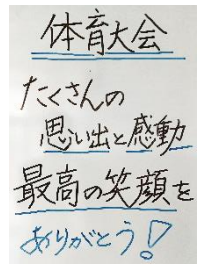 体育大会
たくさんの
思い出と感動
最高の笑顔を
ありがとう!